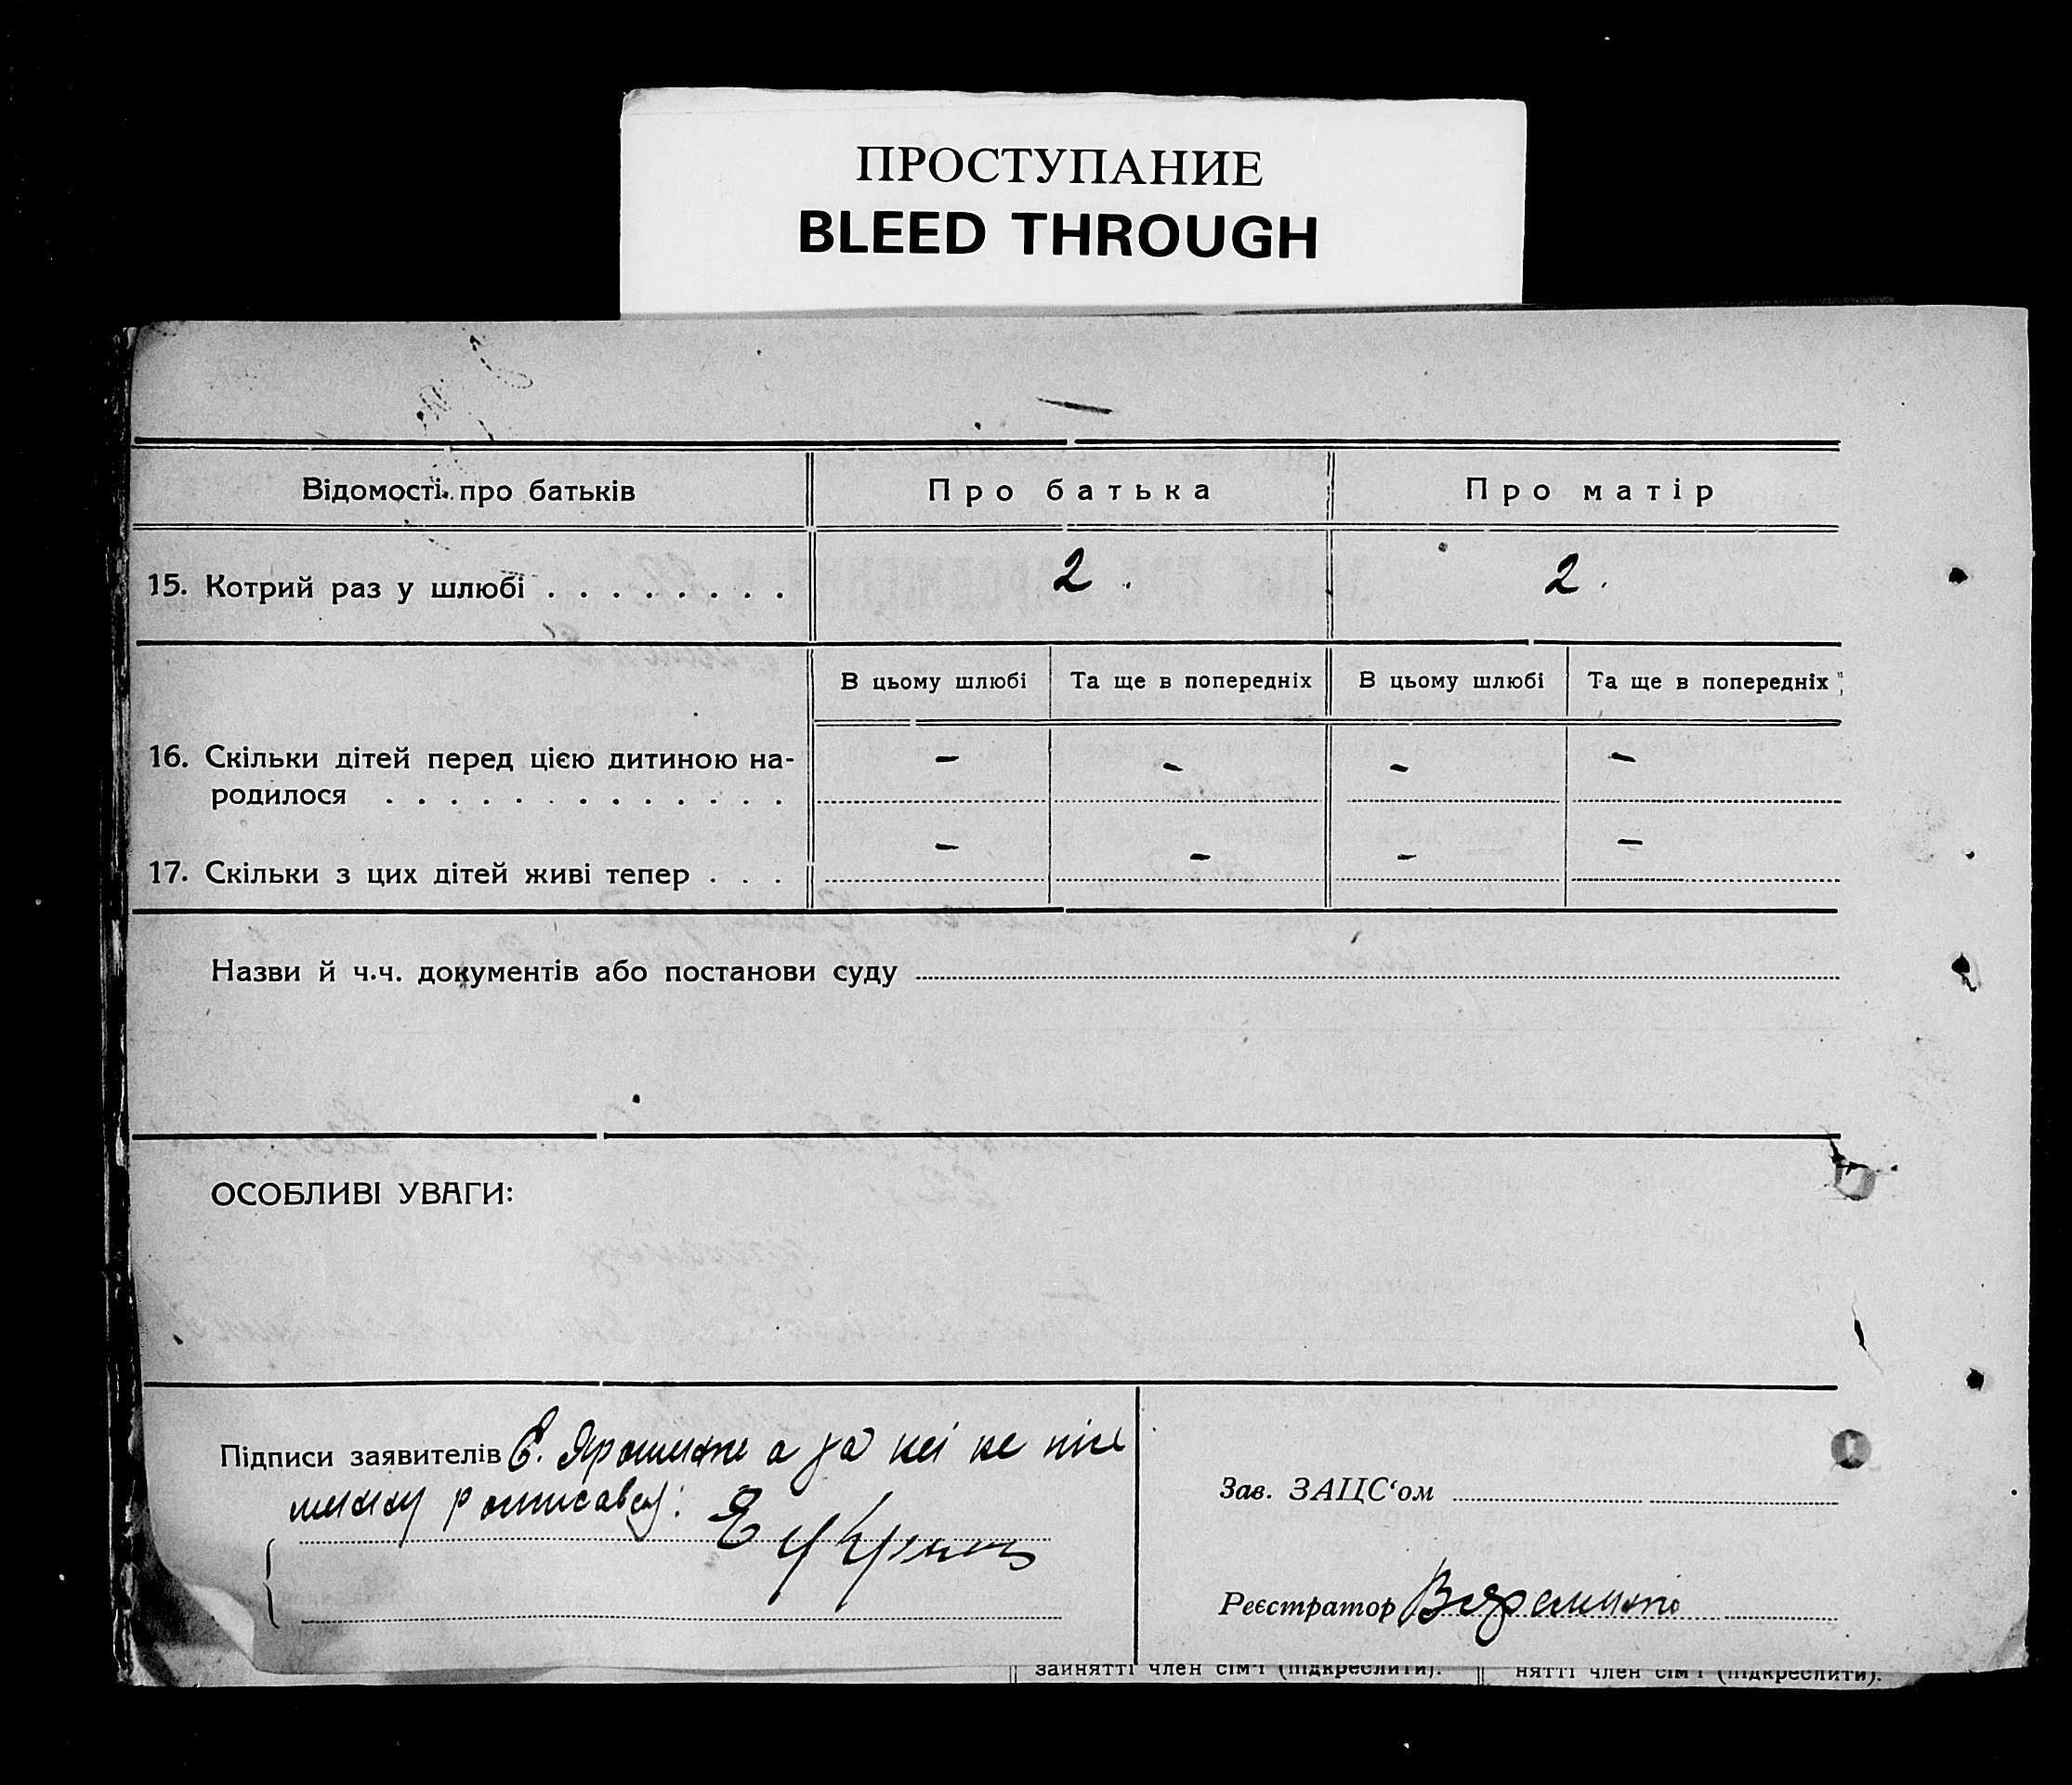 ПРОСТУПАНИЕ
BLEED THROUGH
Відомості про батьків
Про батька
Про матір
15. Котрий раз у шлюбі . . . . . . . .
2.
2.
В цьому шлюбі
Та ще в попередніх
В цьому шлюбі
Та ще в попередніх
16. Скільки дітей перед цією дитиною на-
родилося . . . . . . . . . . . . .
– – – –
17. Скільки з цих дітей живі тепер . . .
– – – –
Назви й ч.ч. документів або постанови суду
ОСОБЛИВІ УВАГИ:
Підписи заявителів Є. а за неі не пис
росписався:
Зав. ЗАЦС‘ом
Реєстратор
зайнятті член сім'ї (підкреслити).
нятті член сім'ї (підкреслити).